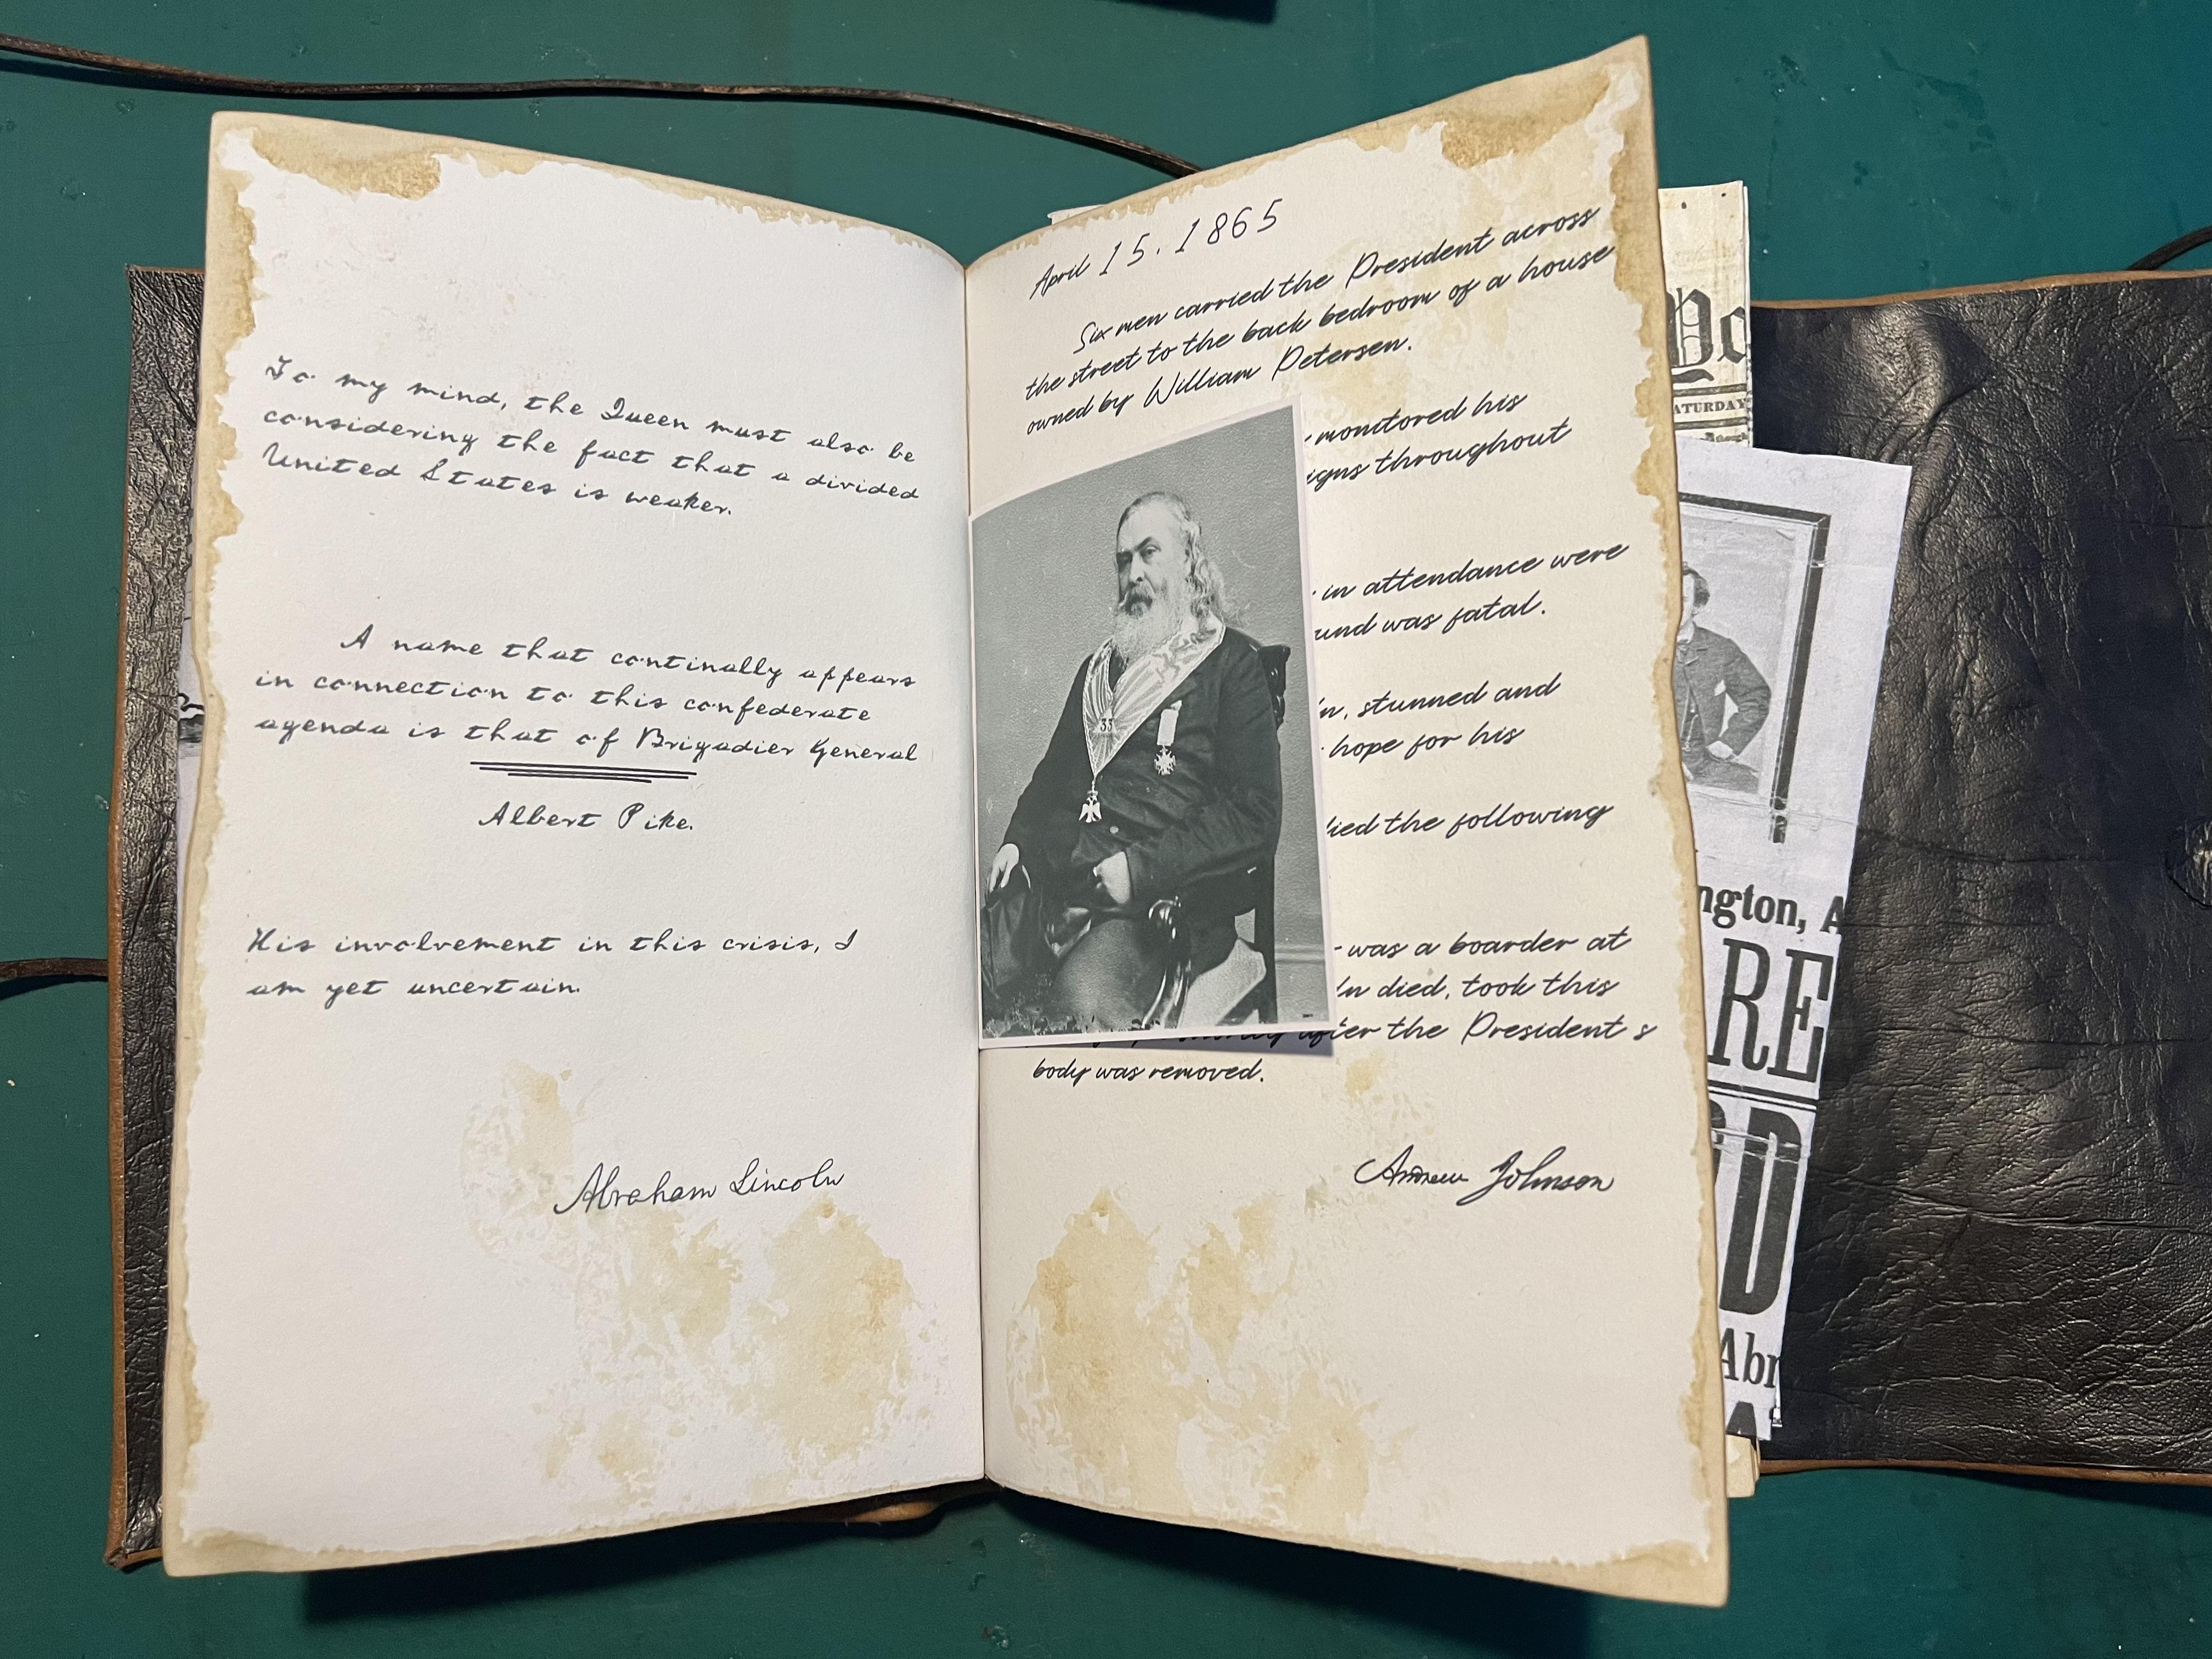 To my mind, the Queen must also be
considering the fact that a divided
United States is weaker.
A name that continally appears
in connection to this confederate
agenda is that of Brigadier General
Albert Pike.
His involvement in this crisis, I
am yet uncertain.
Abraham Lincoln
April 15. 1865
Six men carried the President across
the street to the back bedroom of a house
owned by William Petersen.
monitored his
igns throughout
in attendance were
und was fatal.
n, stunned and
hope for his
ied the following
was a boarder at
ln died, took this
after the President s
body was removed.
Andrew Johnson
33
ATURDAY
ngton, A
RE
D
Abr
A